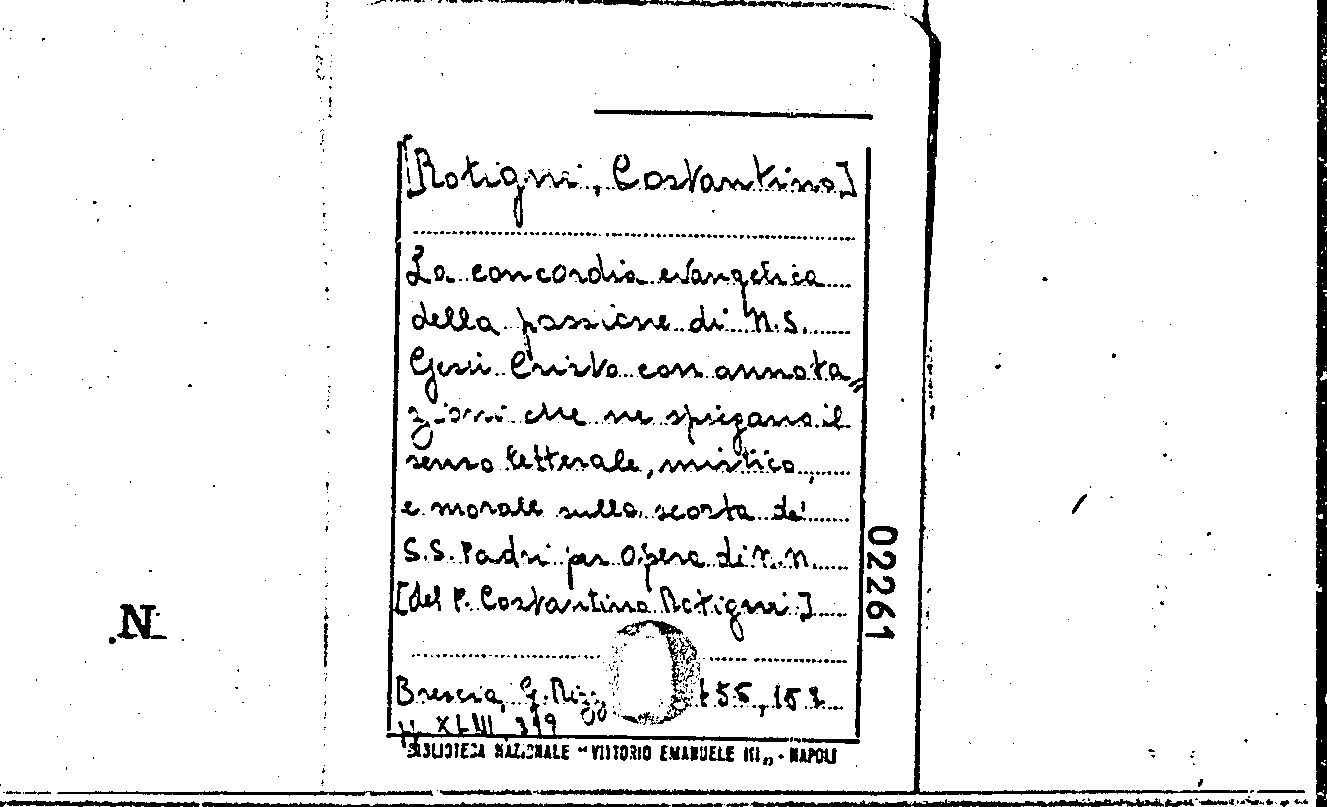 [Rotigni, Costantino]
La concordia evangelica
della passione di N.S.
Gesù Cristo con annota„
zioni che ne spiegano il
senso letterale, mistico,
e morale sulla scorta de'
S.S. Padri per opera di N.N.
[del P. Costantino Rotigni]
02261
N
Brescia, G. 55, 15
XLIII, 319
BIBLIOTECA NAZIONALE “ VITTORIO EMANUELE III „ - NAPOLI